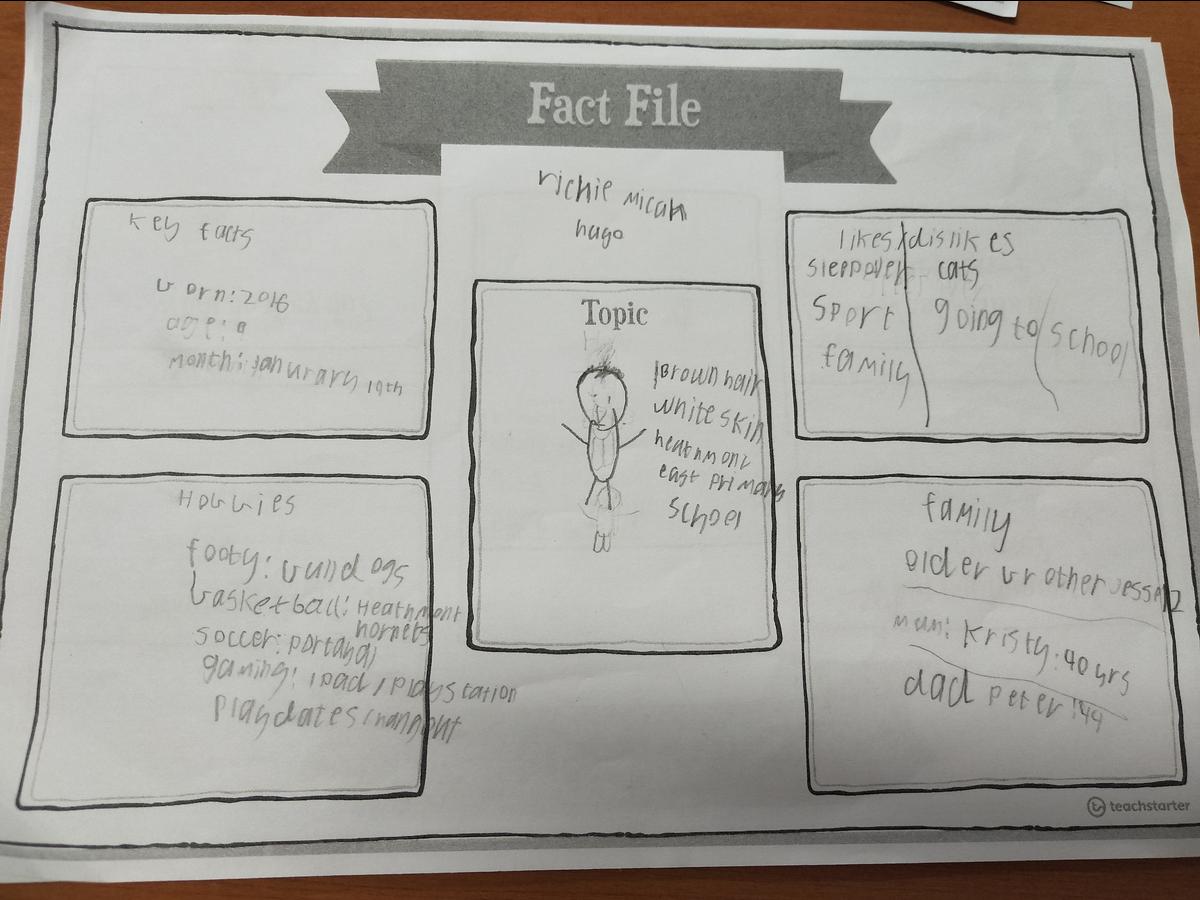 Fact File
richie micah
hugo
key facts
born:2016
age:
month: janurary 19th
Topic
brown hair
white skin
heathmont
east primary
school
likes/dislikes
sleppover cats
sport going to school
family
Hobbies
footy: bulldogs
basketball: Heathmont
hornets
soccer: portagal
gaming: ipad/playstation
playdates/hangout
family
older brother Jesse 12
mum: kristy:40yrs
dad peter:44
teachstarter